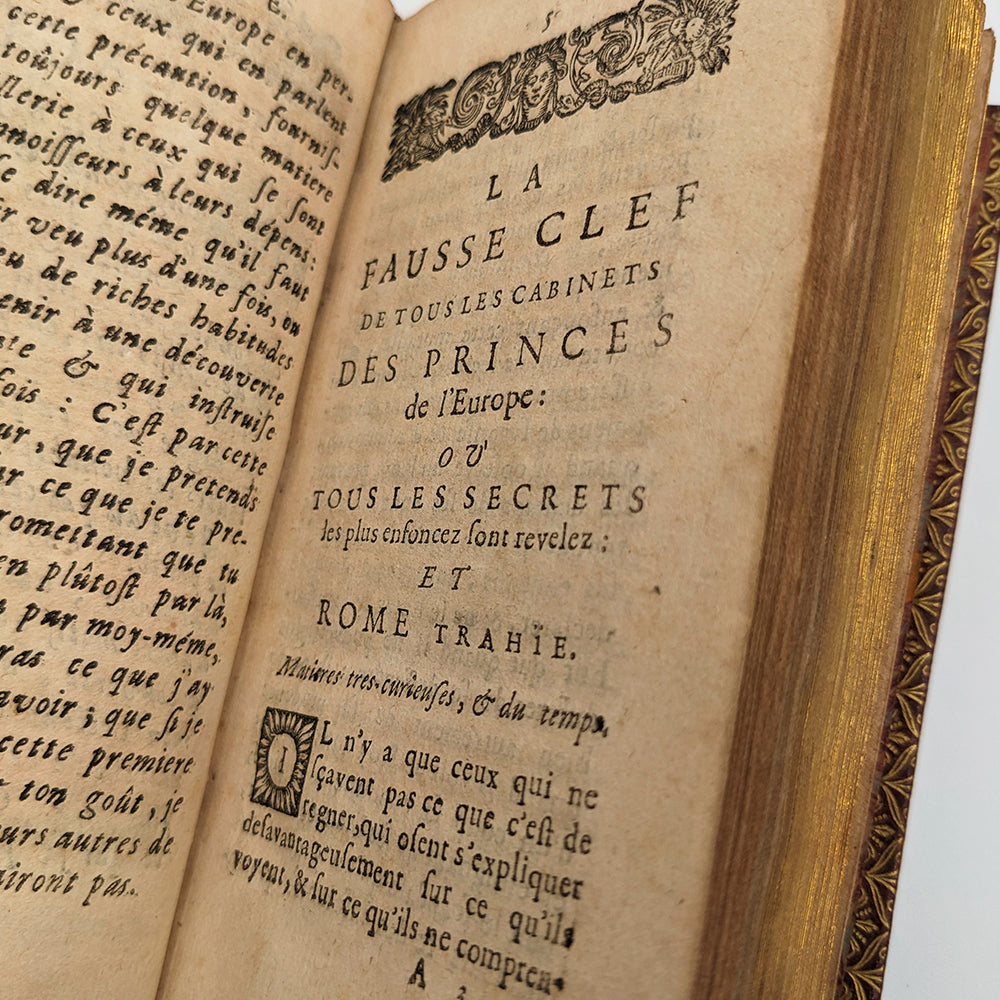 E.
Europe en per-
ceux qui en parlent
cette précaution, fournis-
toûjours quelque matiere
à ceux qui se sont
à leurs dépens:
dire méme qu'il faut
veu plus d'une fois, ou
de riches habitudes
à une découverte
& qui instruise
fois : C'est par cette
que je pretends
ce que je te pre-
que tu
plûtost par là,
par moy-méme,
ce que j'ay
; que si je
cette premiere
ton goût, je
autres de
pas.
5
LA
FAUSSE CLEF
DE TOUS LES CABINETS
DES PRINCES
de l'Europe:
OU
TOUS LES SECRETS
les plus enfoncez sont revelez:
ET
ROME TRAHÏE.
Matieres tres-curieuses, & du temps.
IL n'y a que ceux qui ne
sçavent pas ce que c'est de
regner, qui osent s'expliquer
desavantageusement sur ce qu'ils
voyent, & sur ce qu'ils ne compren-
A 3